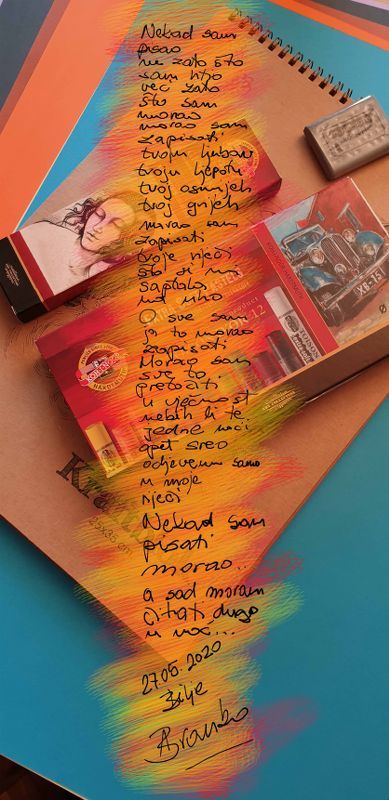 Nekad sam
pisao
ne zato što
sam htio
već zato
što sam
morao
morao sam
zapisati
tvoju ljubav
tvoju ljepotu
tvoj osmijeh
tvoj grijeh
morao sam
zapisati
tvoje riječi
što si mi
šaptala
na uho
O sve sam
ja to morao
zapisati
Morao sam
sve to
pretočiti
u vječnost
nebih li te
jedne noći
opet sreo
odjevenu samo
u moje
riječi
Nekad sam
pisati
morao..
a sad moram
čitati dugo
u noć...
27.05.2020
Bilje
Branko
KOH-I-NOOR
HARDTMUTH
12
XB-75
25x35 cm